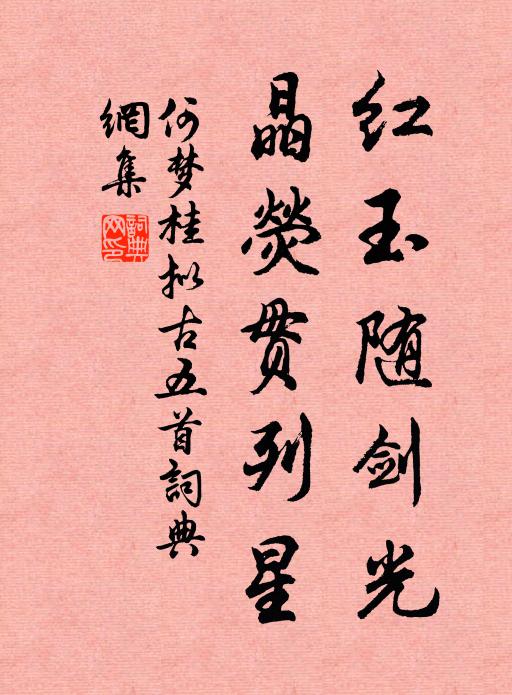 红玉随剑光
晶荧贯列星
何梦桂拟古五首詞典
網集
詞典网印